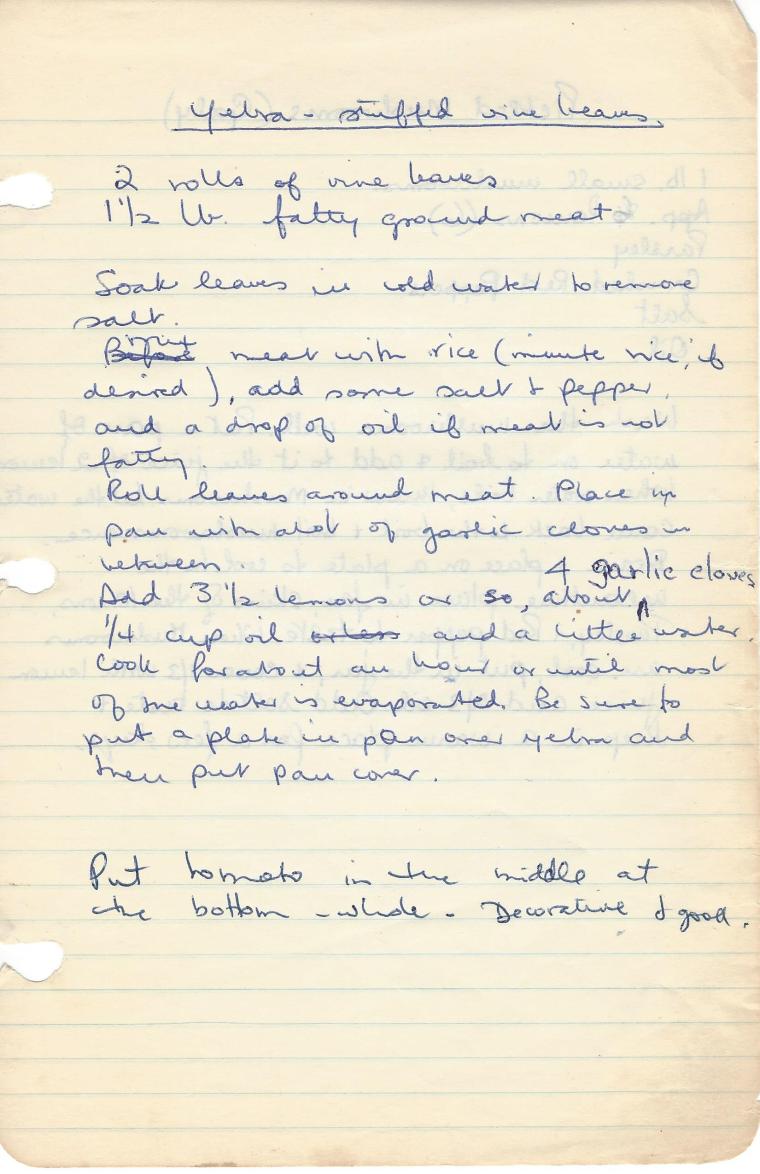 Yebra - stuffed vine leaves.
2 rolls of vine leaves
1 1/2 lb. fatty ground meat
Soak leaves in cold water to remove
salt.
mix
Before meat with rice (minute rice, if
desired), add some salt & pepper,
and a drop of oil if meat is not
fatty.
Roll leaves around meat. Place in
pan with alot of garlic cloves in
between.
4 garlic cloves
Add 3 1/2 lemons or so, about
1/4 cup oil or less and a little water.
Cook for about an hour or until most
of the water is evaporated. Be sure to
put a plate in pan over yebra and
then put pan cover.
Put tomato in the middle at
the bottom - whole - Decorative & good.